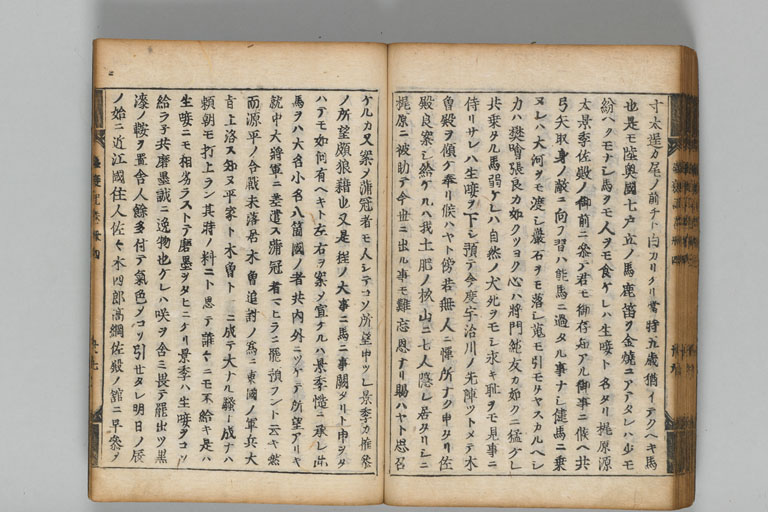 寸太逞カ尾ノ前チト白カリケリ當特五歳猶イテクヘキ馬
也是モ陸奥國七戸立ノ馬鹿笛ヲ金焼ニアテタレハ少モ
紛ヘクモナシ馬ヲモ人ヲモ食ケレハ生唼ト名タリ梶原源
太景季佐殿ノ御前ニ参テ君モ御存知アル御事ニ候ヘ共
弓矢取身ノ敵ニ向フ習ハ能馬ニ過タル事ナシ健馬ニ乗
ヌレハ大河ヲモ渡シ巌石ヲモ落シ蒐モ引モタヤスカルヘシ
力ハ樊噲張良カ如クツヨク心ハ將門純友カ如クニ猛ケレ
共乗タル馬弱ケレハ自然ノ犬死ヲモシ永キ恥ヲモ見事ニ
侍リサレハ生唼ヲ下シ預テ今度宇治川ノ先陣ツトメテ木
曽殿ヲ傾ケ奉リ候ハヤト傍若無人ニ憚所ナク申タリ佐
殿良案シ給ケルハ我土肥ノ杉山ニ七人隠レ居タリシニ
梶原ニ被助テ今世ニ出ル事モ難忘恩ナリ賜ハヤト思召
ケルカ又案ヲ蒲冠者モ人シテコソ所望申ツレ景季カ推参
ノ所望頗狼藉也又是程ノ大事ニ馬ニ事闕タリト申ヲタ
ハテモ如何有ヘキト左右ヲ案メ宣ケルハ景季慥ニ承レ此
馬ヲハ大名小名八箇國ノ者共内外ニツケテ所望アリキ
就中大將軍ニ差遣ス蒲冠者ヒラニ罷預ラント云キ然
而源平ノ合戰未落居木曽追討ノ為ニ東國ノ軍兵大
旨上洛ス知ヌ平家ト木曽ト一ニ成テ大ナル騒ト成ナハ
頼朝モ打上ラン其時ノ料ニト思テ誰々ニモ不給キ是ハ
生唼ニモ相劣ラストテ磨墨ヲタヒニケリ景季ハ生唼ヲコソ
給ラ子共磨墨誠ニ逸物也ケレハ咲ヲ含ミ畏テ罷出ツ黒
漆ノ鞍ヲ置舎人餘多付テ氣色メコソ引セタレ明日ノ辰
ノ始ニ近江國住人佐々木四郎高綱佐殿ノ舘ニ早参ヲ